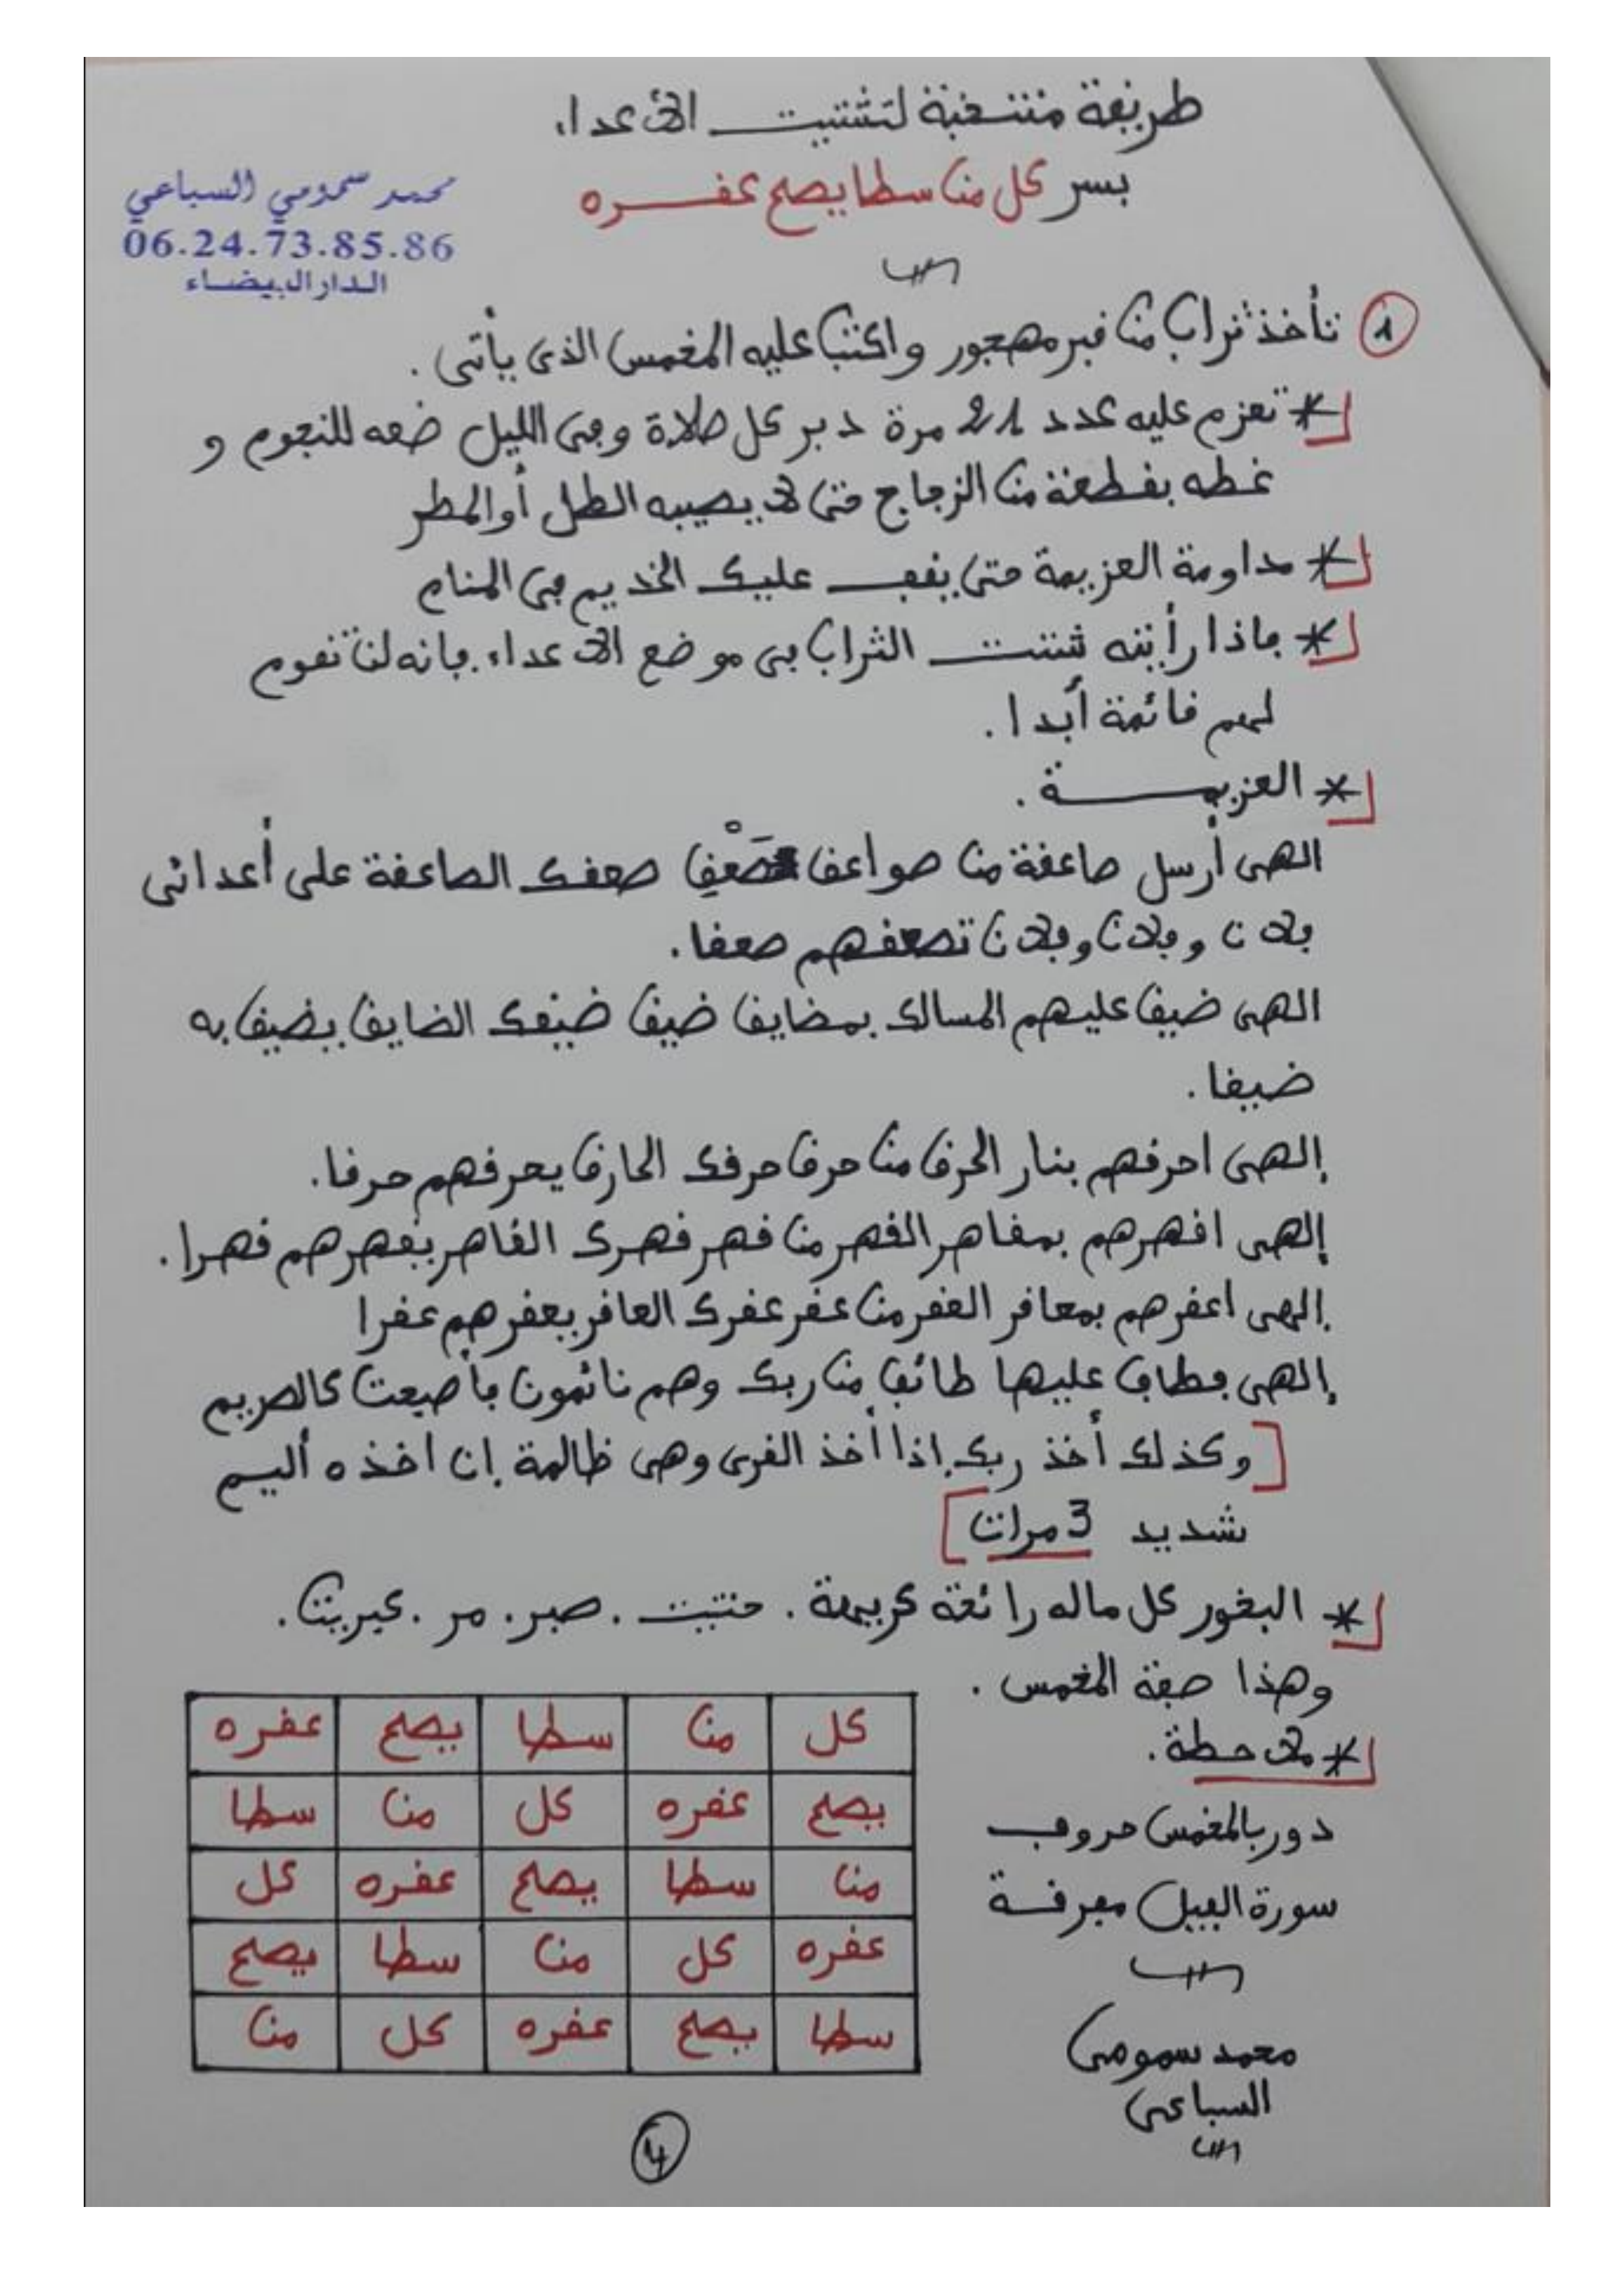 طريقة منتخبة لتشتيت الأعداء
بسر كل من سطا يصع عفره
محمد سمومي السباعي
06.24.73.85.86
الدار البيضاء
1 تأخذ تراب من قبر مهجور واكتب عليه المخمس الذي يأتي .
* تعزم عليه عدد 21 مرة دبر كل صلاة وفي الليل ضعه للنجوم و
غطه بقطعة من الزجاج حتى لا يصيبه الطل أو المطر
* مداومة العزيمة حتى يقف عليك الخديم في المنام
* فإذا رأيته شتت التراب في موضع الأعداء . فإنه لن تقوم
لهم قائمة أبدا .
* العزيمة .
الهي أرسل صاعقة من صواعق صَعْق صعقك الصاعقة على أعدائي
فلان وفلان وفلان تصعقهم صعقا .
الهي ضيق عليهم المسالك بمضايق ضيق ضيقك الضايق يضيق به
ضيقا .
إلهي احرقهم بنار الحرق من حرق حرقك الحارق يحرقهم حرقا .
إلهي اقهرهم بمقاهر القهر من قهر قهرك القاهر يقهرهم قهرا .
إلهي اعقرهم بمعاقر العقر من عقر عقرك العاقر يعقرهم عقرا
إلهي فطاف عليها طائف من ربك وهم نائمون فأصبحت كالصريم
[ وكذلك أخذ ربك إذا أخذ القرى وهي ظالمة إن اخذه أليم
شديد 3 مرات ]
* البخور كل ماله رائحة كريهة . حنتيت . صبر . مر . كبريت .
وهذا صفة المخمس .
كل من سطا يصع عفره
يصع عفره كل من سطا
من سطا يصع عفره كل
عفره كل من سطا يصع
سطا يصع عفره كل من
* ملاحظة .
دور بالمخمس حروف
سورة الفيل مفرقة
محمد سمومي
السباعي
4